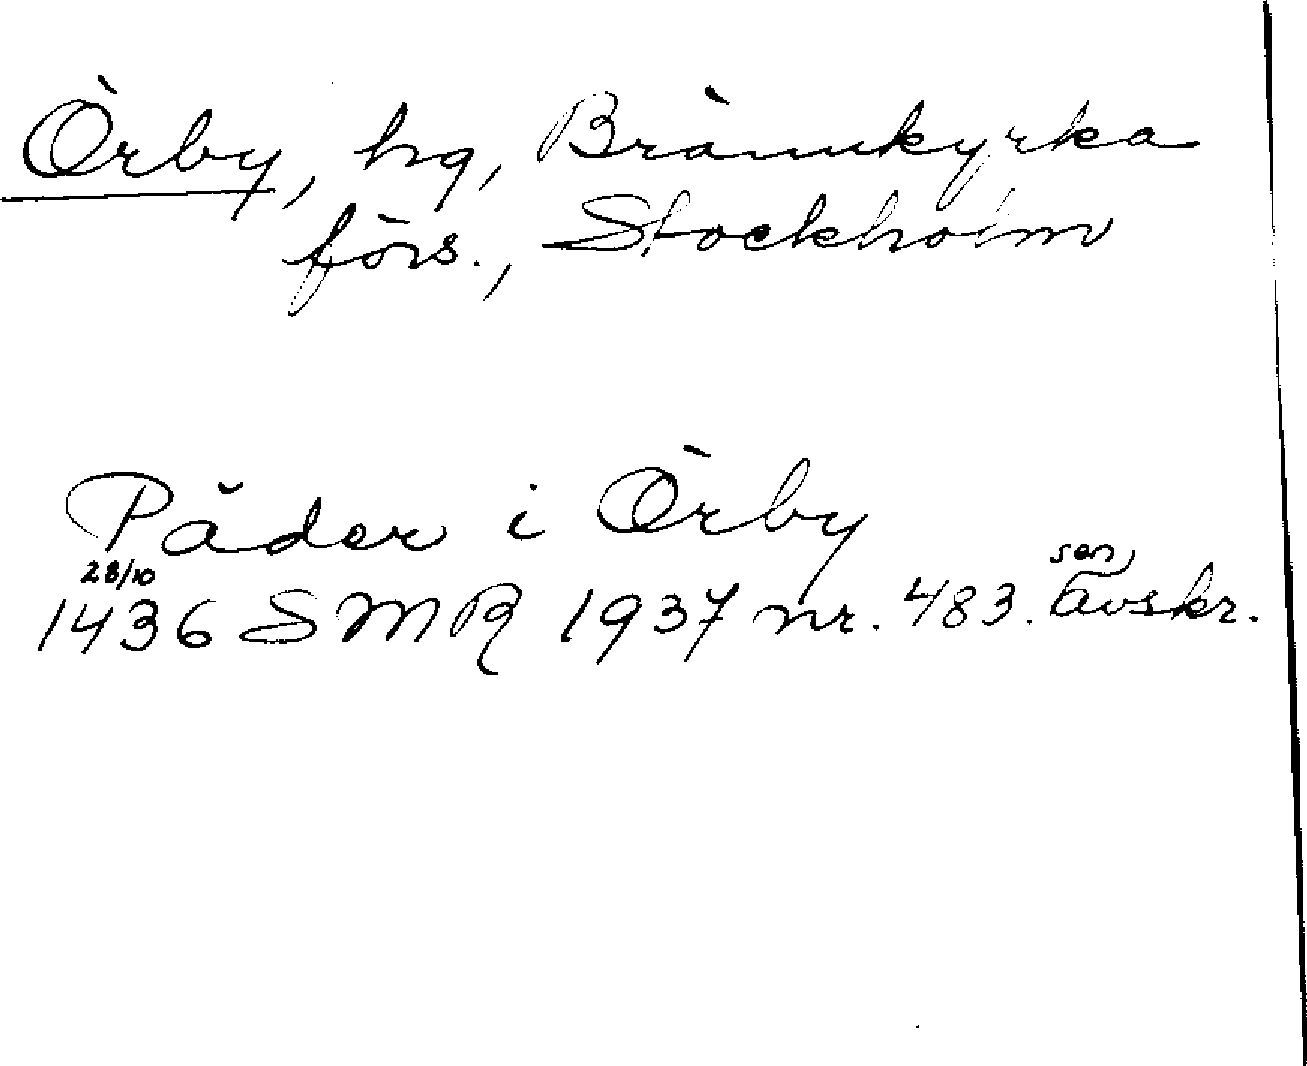 Örby, hg, Brännkyrka
förs., Stockholm
Päder i Örby
28/10
sen
1436 SMR 1937 nr. 483. avskr.